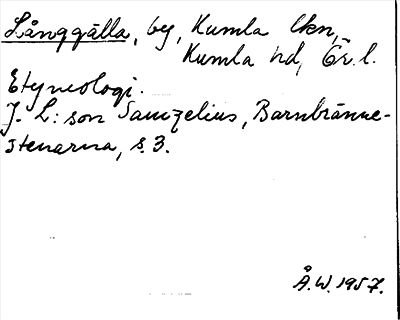 Långgälla, by, Kumla lkn,
Kumla hd, Ör. l.
Etymologi.
J. L:son Samzelius, Barnbränne-
stenarna, s. 3.
Å. W. 1957.